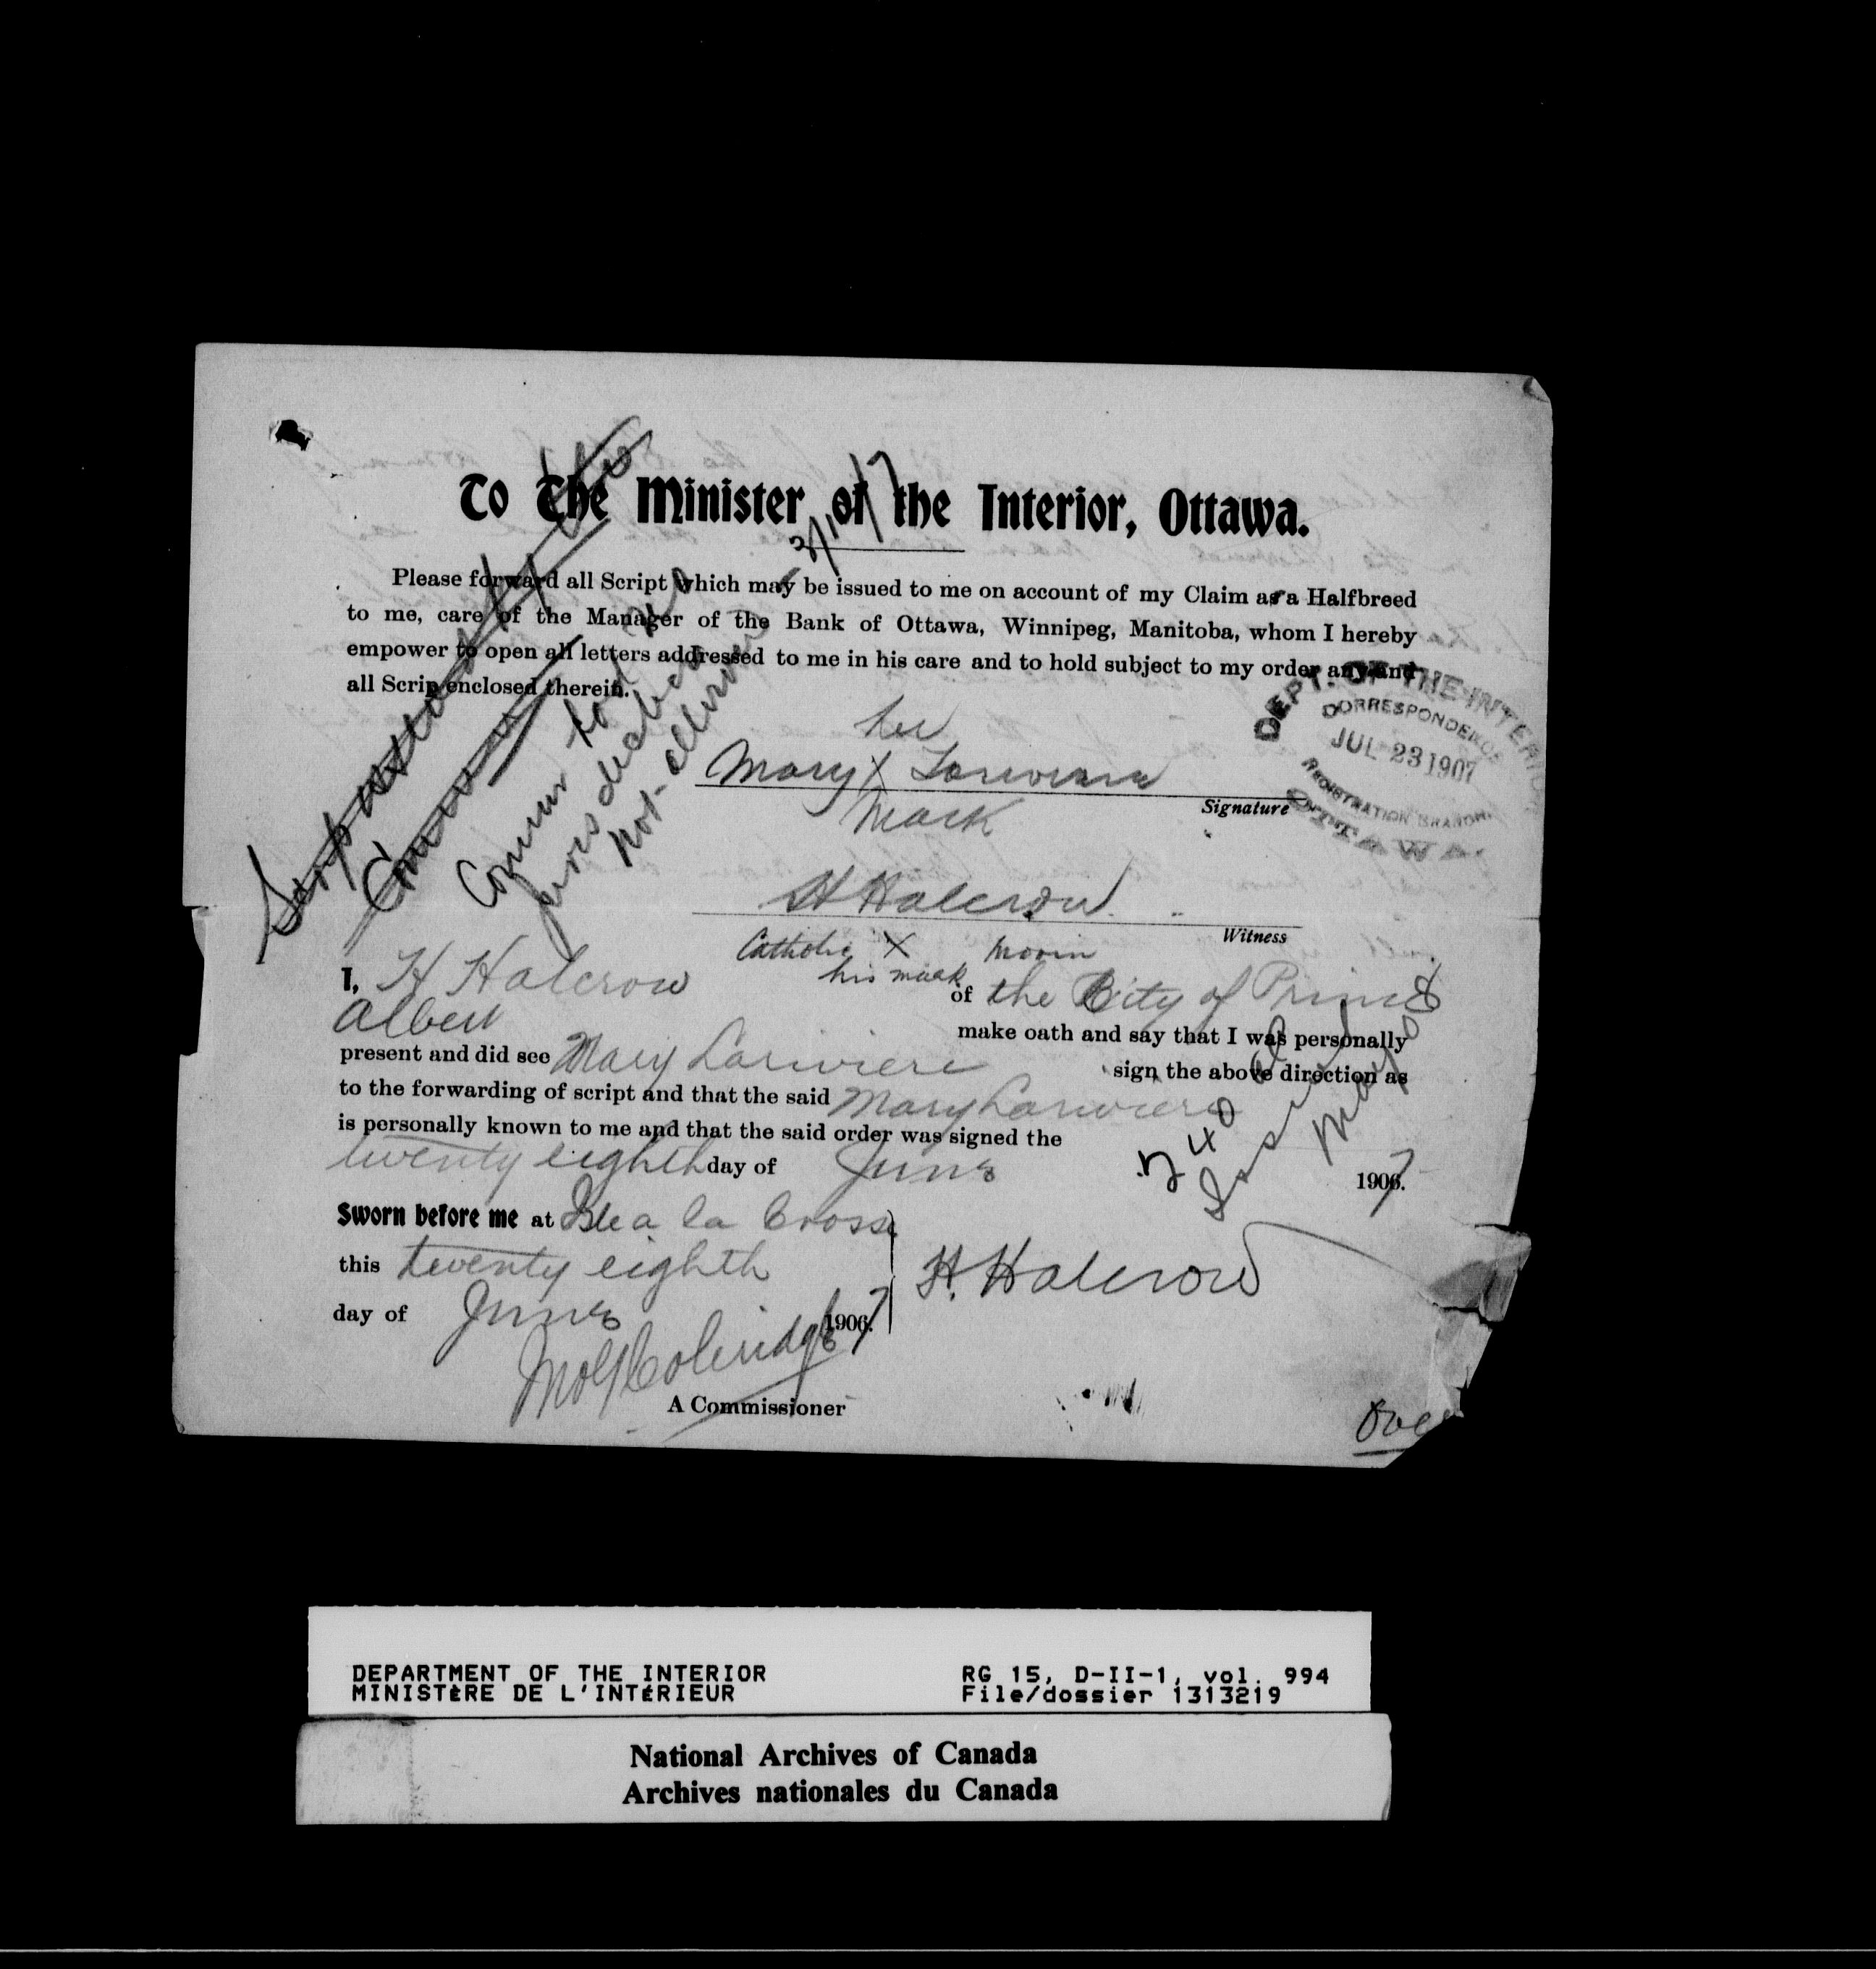 To The Minister of the Interior, Ottawa.
Please forward all Script which may be issued to me on account of my Claim as a Halfbreed
to me, care of the Manager of the Bank of Ottawa, Winnipeg, Manitoba, whom I hereby
empower to open all letters addressed to me in his care and to hold subject to my order any and
all Scrip enclosed therein.
DEPT. OF THE INTERIOR
CORRESPONDENCE
JUL 23 1907
REGISTRATION BRANCH
OTTAWA
her
Mary X Lariviere
Mark
Signature
H Halcrow
Witness
Catholic X Morin
his mark
I, H Halcrow of the City of Prince
Albert make oath and say that I was personally
present and did see Mary Lariviere sign the above direction as
to the forwarding of script and that the said Mary Lariviere
is personally known to me and that the said order was signed the
twenty eighth day of June 1907.
Sworn before me at Isle a la Crosse
this twenty eighth
H. Halcrow
day of June 1907.
A Commissioner
Over
not
240
DEPARTMENT OF THE INTERIOR
MINISTÈRE DE L'INTÉRIEUR
RG 15, D-II-1, vol. 994
File/dossier 1313219
National Archives of Canada
Archives nationales du Canada